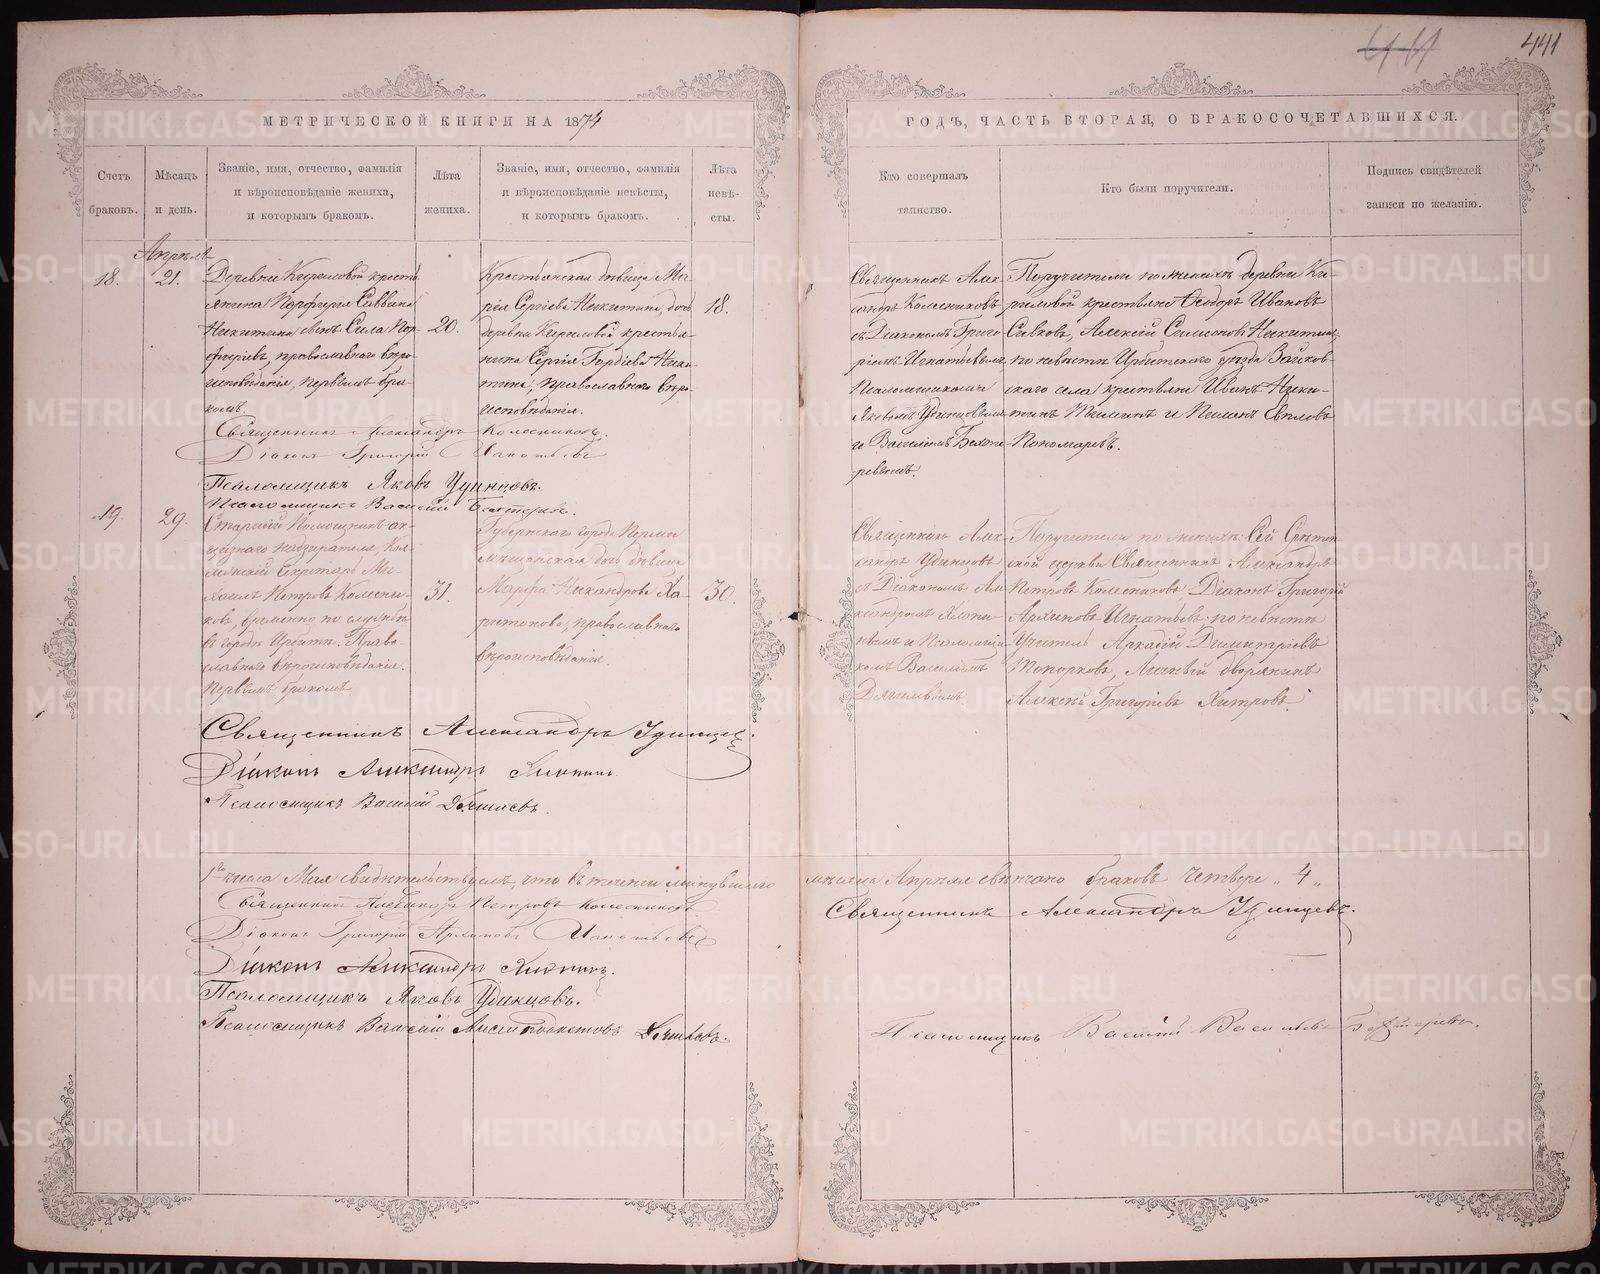 441
441
МЕТРИЧЕСКОЙ КНИГИ НА 1874
ГОДЪ, ЧАСТЬ ВТОРАЯ, О БРАКОСОЧЕТАВШИХСЯ.
Счетъ
браковъ.
Мѣсяцъ
и день.
Званіе, имя, отчество, фамилія
и вѣроисповѣданіе жениха,
и которымъ бракомъ.
Лѣта
жениха.
Званіе, имя, отчество, фамилія
и вѣроисповѣданіе невѣсты,
и которымъ бракомъ.
Лѣта
невѣ-
сты.
Кто совершалъ
таинство.
Кто были поручители.
Подпись свидѣтелей
записи по желанію.
Апрѣль
18.
21.
Деревни Кириловой кресть
янина Порфирія Саввина
Никитина сынъ Сила Пор
фиріевъ, православнаго вѣро
исповѣданія, первымъ бра
комъ.
20.
Крестьянская дѣвица Ма
рія Сергіева Никитина, дочь
деревни Кириловой крестья
нина Сергія Гордіева Ники
тина, православнаго вѣро
исповѣданія.
18.
Священникъ Алек
сандръ Колесниковъ
съ Діакономъ Григо
ріемъ Игнатьевымъ
Псаломщиками
Яковомъ Удинцовымъ
и Василіемъ Бехте
ревымъ.
Поручители по женихѣ деревни Ки-
риловой крестьяне Ѳеодоръ Ивановъ
Савковъ, Алексій Симеоновъ Никитинъ,
по невѣстѣ Ирбитскаго уѣзда Зайков
скаго села крестьяне Иванъ Ники-
тинъ и Пименъ
Пономаревъ.
Священникъ Александръ Колесниковъ.
Діаконъ Григорій Игнатьевъ
Псаломщикъ Яковъ Удинцовъ.
Псаломщикъ Василій Бехтеревъ.
19.
29.
Старшій Помощникъ ак-
цизнаго надзирателя, Кол
лежскій Секретарь Ми-
хаилъ Петровъ Колесни-
ковъ, временно по службѣ
въ городѣ Ирбити. Право
славнаго вѣроисповѣданія.
Первымъ бракомъ
31.
Губернскаго города Перми
мѣщанская дочь дѣвица
Марфа Никандрова Ха-
ритонова, православнаго
вѣроисповѣданія.
30.
Священникъ Алек
сандръ Удинцовъ
съ Діакономъ Але
ксандромъ
и Псаломщи
комъ Василіемъ
Поручители по женихѣ: Сей Срѣтен
ской церкви Священникъ Александръ
Петровъ Колесниковъ Діаконъ Григорій
Архиповъ Игнатьевъ по невѣстѣ
Учитель Аркадій Димитріевъ
Топорковъ, Личный дворянинъ
Алексѣй Григоріевъ Хитровъ.
Священникъ Александръ Удинцевъ.
Діаконъ Александръ
Псаломщикъ Василій
1го числа Мая свидѣтельствуемъ, что въ теченіи минувшаго мѣсяца Апрѣля свѣнчано браковъ Четыре „4„
Священникъ Александръ Петровъ Колесниковъ
Священникъ Александръ Удинцевъ.
Діаконъ Григорій Архиповъ Игнатьевъ
Діаконъ Александръ
Псаломщикъ Яковъ Удинцовъ.
Псаломщикъ Василій
Псаломщикъ Василій Васильевъ Бехтеревъ.
METRIKI.GASO-URAL.RU